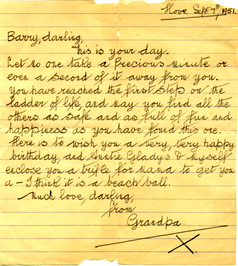 Hove Sept 7th, 1951.
Barry, darling,
This is your day.
Let no one take a Precious minute or
even a second of it away from you.
You have reached the first step on the
ladder of life, and may you find all the
others as safe and as full of fun and
happiness as you have found this one.
Here is to wish you a very, very happy
birthday, and Auntie Gladys & myself
enclose you a trifle for Nana to get you
a - I think it is a beach ball.
Much love, darling,
from
Grandpa
X.